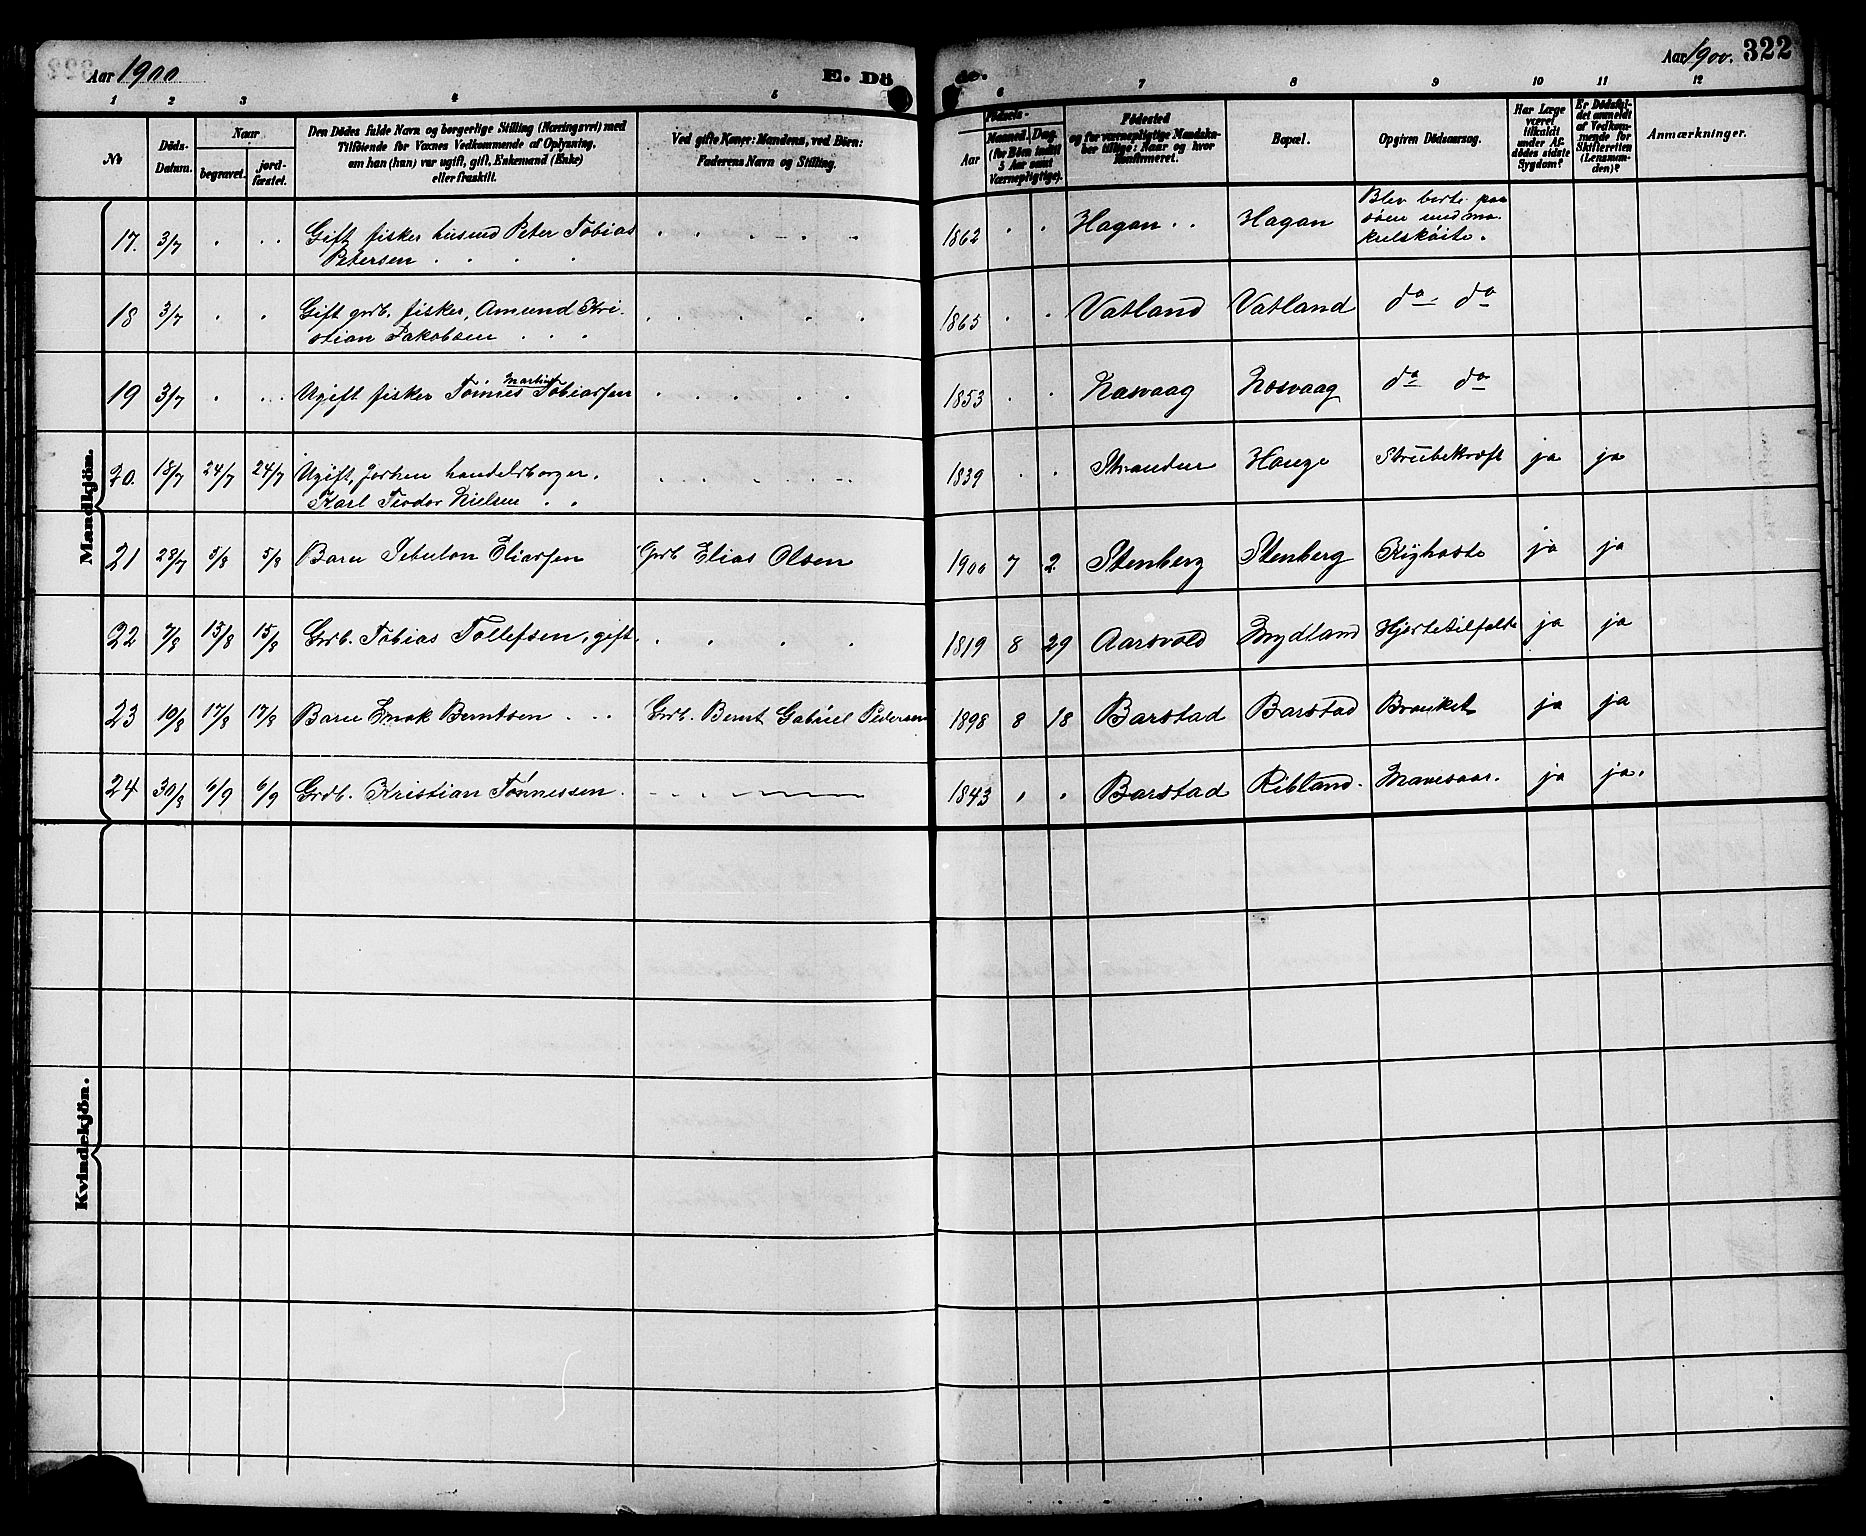 Aar 1900 E. Döde. Aar 1900. 322
1 2 3 4 5 6 7 8 9 10 11 12
No
Döds-Datum.
Naar
begravet.
jordfæstet.
Den Dödes fulde Navn og borgerlige Stilling (Næringsvei) med
Tilföiende for Voxnes Vedkommende af Oplysning,
om han (hun) var ugift, gift, Enkemand (Enke)
eller fraskilt.
Ved gifte Koner: Mandens, ved Börn:
Faderens Navn og Stilling.
Födsels-
Aar
Maaned. Dag.
(for Börn indtil
5 Aar samt
Værnepligtige).
Födested
og for værnepligtige Mandskaber tillige: Naar og hvor
konfirmeret.
Bopæl.
Opgiven Dödsaarsag.
Har Læge
været
tilkaldt
under Afdödes sidste
Sygdom?
Er Dödsfaldet anmeldt
af Vedkommende for
Skifteretten
(Lensmanden)?
Anmærkninger.
Mandkjön.
17. 3/7 Gift fisker husmd Peter Tobias
Petersen 1862 Hagan Hagan Blev borte paa
söen med makrelsköite.
18 3/7 Gift grb. fisker, Amund Kristian Jakobsen 1865 Vatland Vatland do do
19 3/7 Ugift fisker Tönnes Martin Tobiassen 1853 Kosvaag Kosvaag do do
20. 18/7 24/7 24/7 Ugift, forhen handelsborger,
Karl Teodor Nielsen 1839 Stranden Hauge Strubekræft ja ja
21 28/7 5/8 5/8 Barn Sebulon Eliassen Grb Elias Olsen 1900 7 2 Stenberg Stenberg Kighoste ja ja
22 7/8 15/8 15/8 Grb. Tobias Tollefsen, gift 1819 8 29 Aarsvold Mydland Hjertetilfælde ja ja
23 10/8 17/8 17/8 Barn Enok Berntsen Grb. Bernt Gabriel Pedersen 1898 8 18 Barstad Barstad Bronkit ja ja
24 30/8 6/9 6/9 Grdb. Kristian Tönnessen 1843 Barstad Ribland. Mavesaar. ja ja.
Kvindekjön.